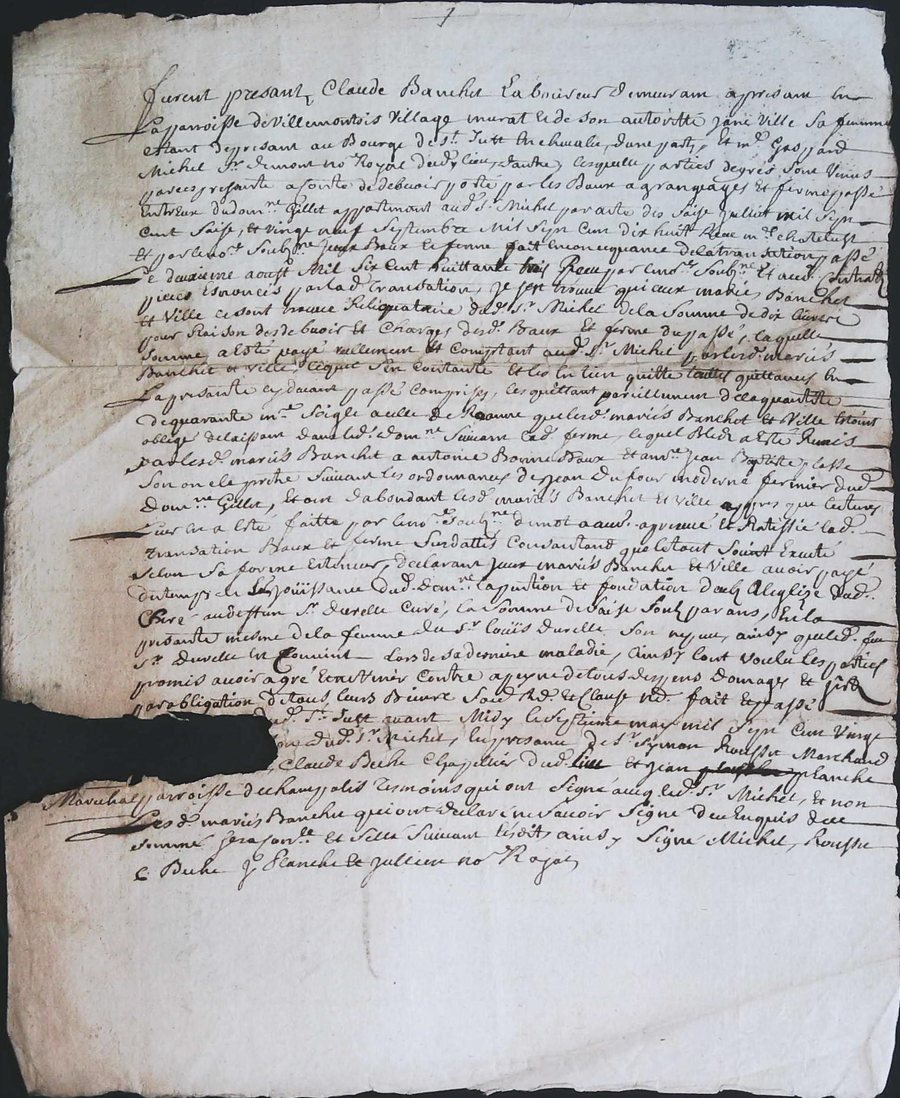 furent presant Claude Banchet Laboureur demeurant apresant en
La parroisse de Villemontois Village murat et de son autoritté Jane Ville sa femme
estant de presant au Bourg de St Just en chevalet, d'une part, Et me Gaspard
Michel sr demont no.re Royal dud. lieu, d'autre, lesquelle parties de gres sont Venus
par ces presante a conte de debvoir porté par les Baux a grangages Et ferme passé
Entreux du dom.ne Gillet appartenant aud. sr Michel par acte des saise julliet mil sept
cent saise, et vingt neuf septembre mil sept cen dix huit Receu me chatelust
Et par le no.re soubz.ne Baux de ferme fait en consequance de la transation passé
Le deuxieme aoust mil six cent huittante trois Receu par le no.re soubz.ne Et aud.
pieces Enoncés par lad. Transation, Je sen trouve que iceux mariés Banchet
et Ville ce sont trouve Reliquataire dud. sr Michel de la somme de dix livres
pour Raison desd. debvoir et Charges desd. Baux Et ferme du passé, laquelle
somme a Esté payé reellement Et comptant aud. sr Michel par lesd. mariés
Banchet et Ville lequel s'en contante et les en tien quitte toutes quittances en
La presante cy devant passé comprises, les quittant pareillement de la quantitté
de quarante me.s seigle a celle de Roanne que lesd. mariés Banchet et Ville etoint
obligé de laisser dans led. dom.ne suivant lad. ferme, lequel Bled a esté Remis
par lesd. mariés Banchet a antoine Bonne Baux et me Jean Baptiste plasse
son oncle prche suivant les ordonnances de jean Dufour moderne fermier dud.
dom.ne Gillet, et ont d'abondant lesd. mariés Banchet et Ville, appres que lectures
Leur en a esté faitte par le no.re soubz.ne de mot a aut. aprouvé et Ratiffié lad.
Transation Baux et ferme susdattés Consantand que le tout soint Executé
selon sa forme Et teneur, declarant iceux mariés Banchet et Ville avoir payé
du temps de Leur joüissance dud. dom.ne la pention et fondation deub a l'eglize dud.
Chere au deffun sr durelle curé, la somme de saise soulz par ans, En la
presante mesme de la femme du sr loüis durelle son nepveu, ainsy que led. feu
sr durelle en Convint lors de sa derniere maladie, Ainsy l'ont voulu les parties
promis avoir agré et n'venir contre a peyne de tous despens domages et
par obligation de tous leurs Biens Soub. Rd. et Clause nd. fait et passé
aud. St Just avant midy le septieme may mil sept cen vingt
dud. sr Michel, en presance de sr Symon Rousset Marchand
, Claude Beche Chapellier dud. lieu et jean planche
Marechal parroisse de champolis Temoins qui ont signé avec led. sr Michel, et non
Lesd. mariés Banchet qui ont declaré ne savoir signe de ce Enquis et
sommé et selle suivant l'esdits ainsy signe Michel, Rousset
C Beche J planche et Jullien no.re Royal